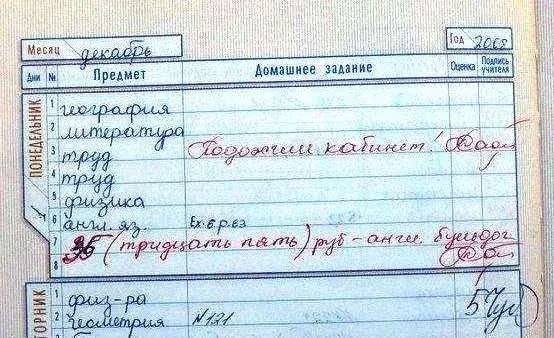 Месяц декабрь
Год 2008
Дни № Предмет Домашнее задание Оценка Подпись учителя
ПОНЕДЕЛЬНИК
1 география
2 литература
3 труд Подожгли кабинет!
4 труд
5 физика
6 англ. яз. Ex. 6. p. 63
7 35 (тридцать пять) руб - англ. бульдог
8
ТОРНИК
1 физ-ра 5
2 геометрия №121